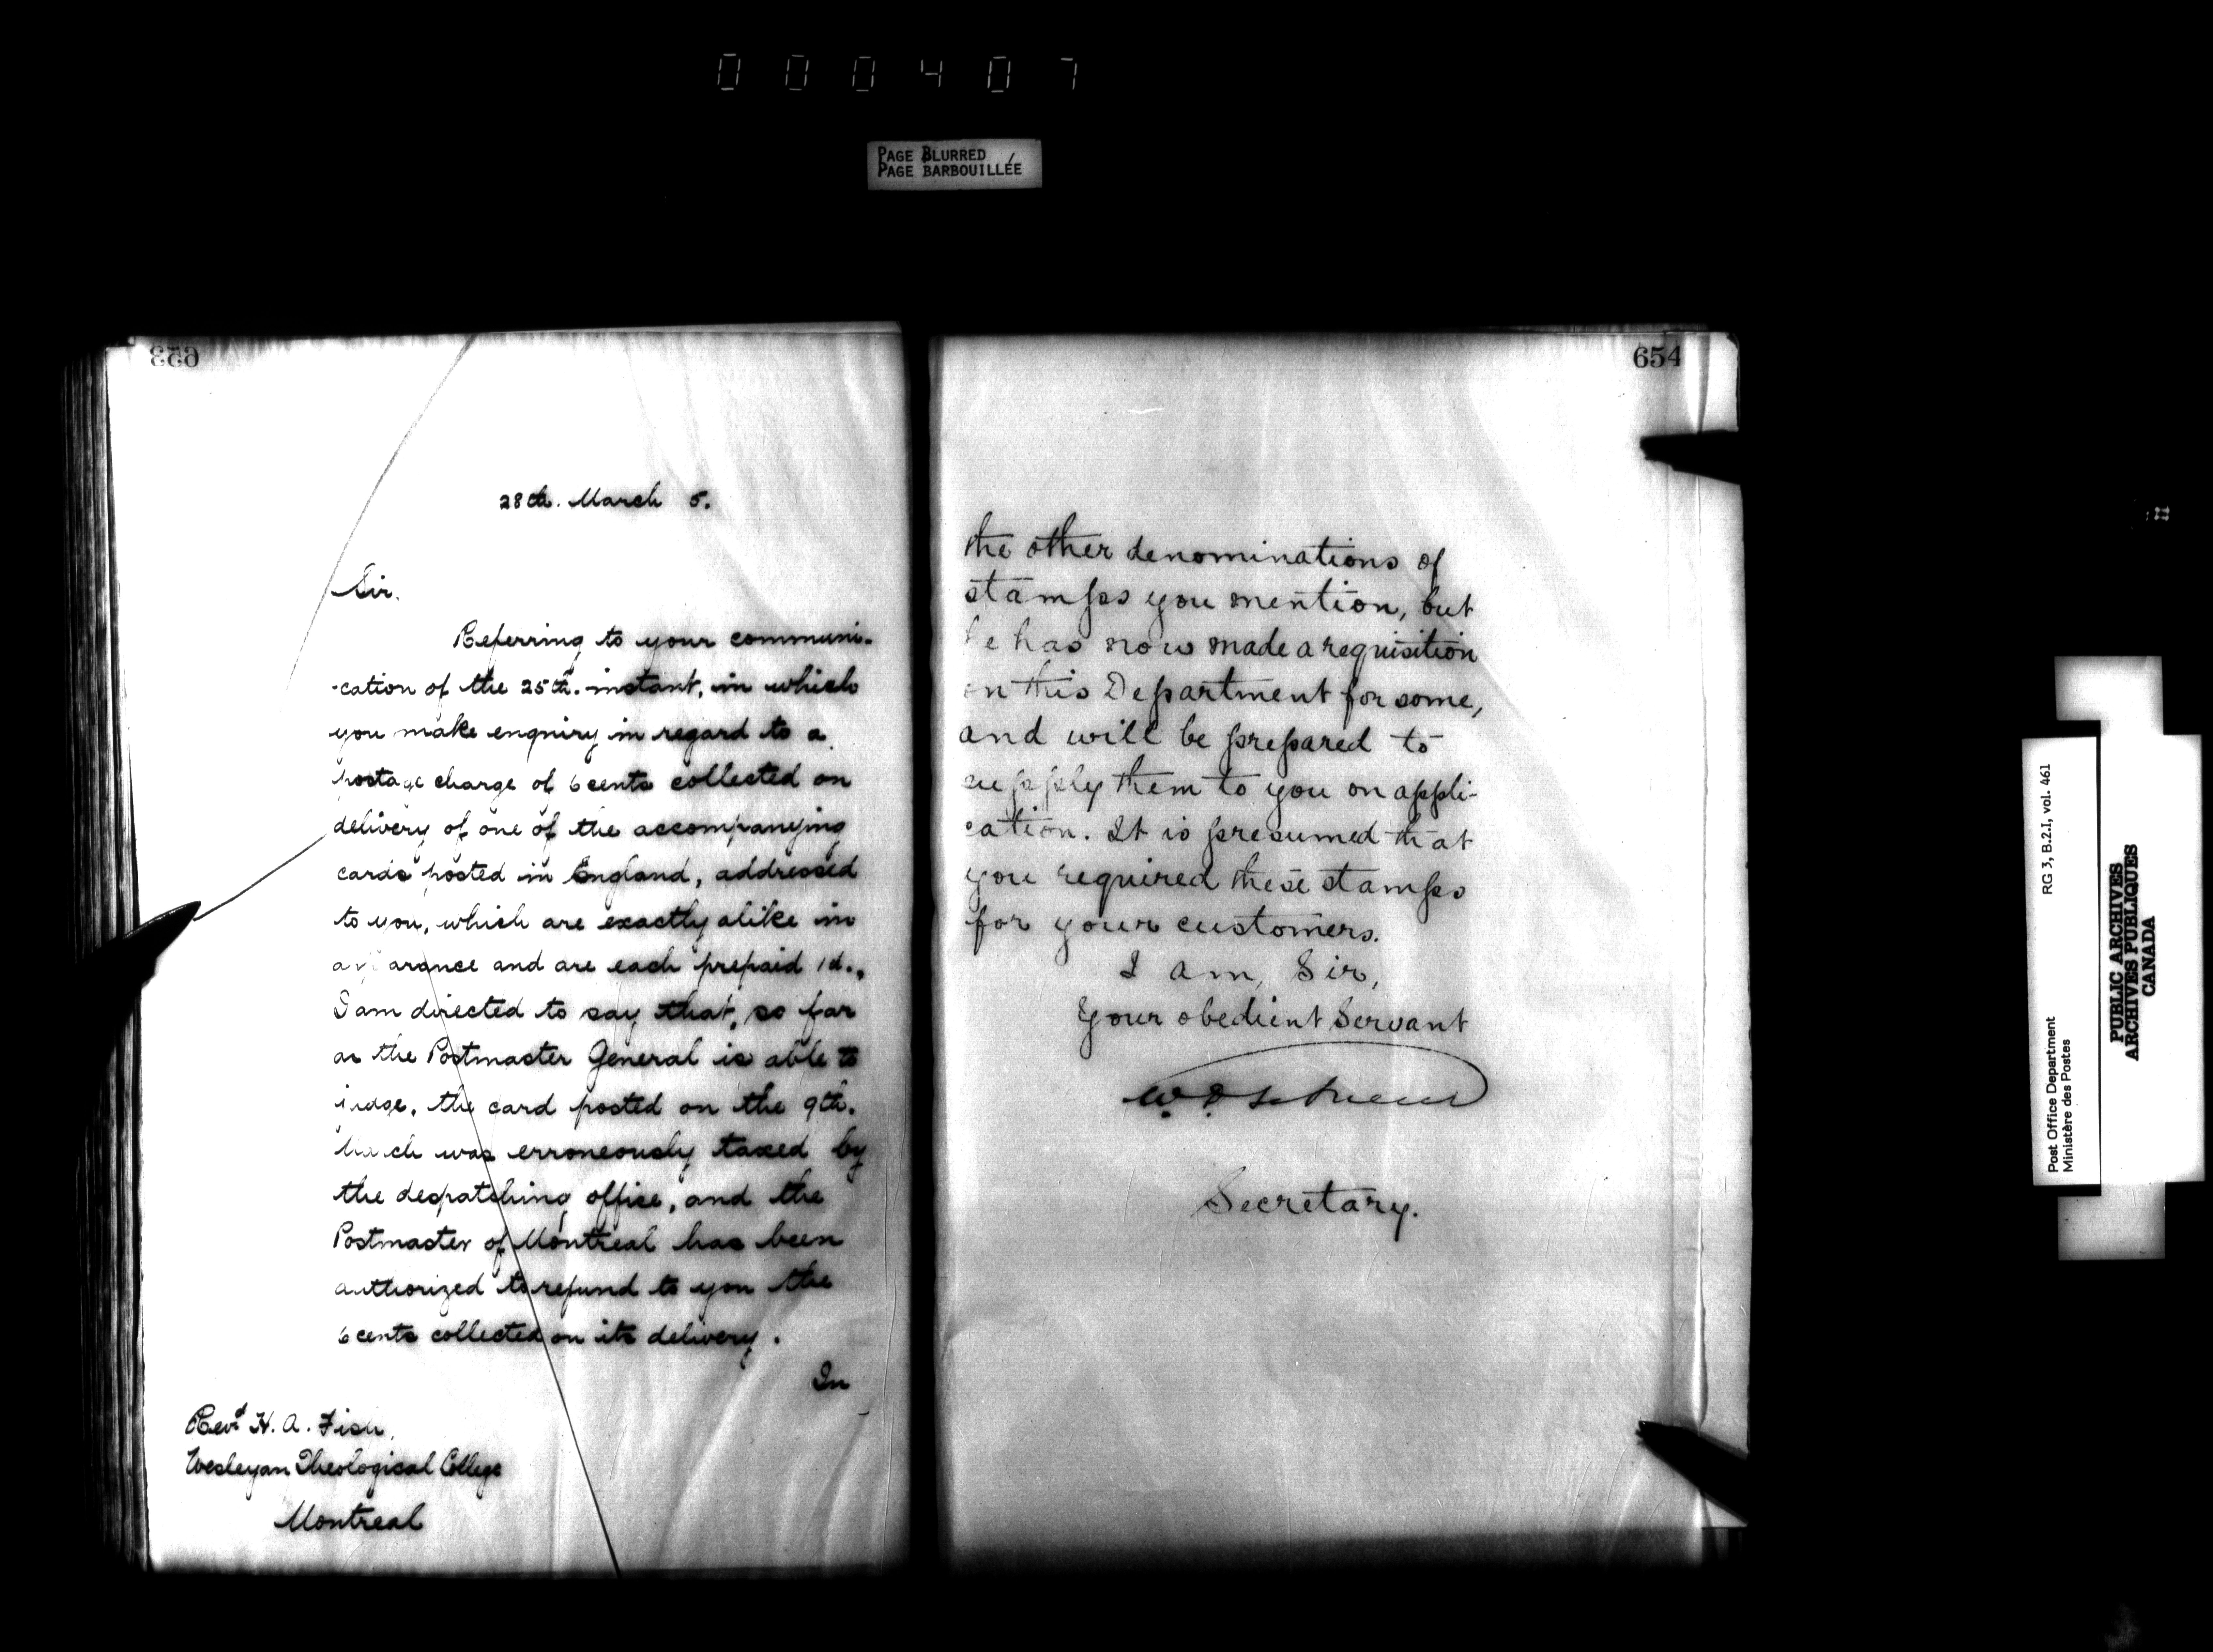 0 0 0 4 0 7
PAGE BLURRED
PAGE BARBOUILLÉE
653
28th. March 5.
Sir.
Referring to your communi-
-cation of the 25th. instant, in which
you make enquiry in regard to a
postage charge of 6 cents collected on
delivery of one of the accompanying
cards posted in England, addressed
to you, which are exactly alike in
appearance and are each prepaid 1d.,
I am directed to say that, so far
as the Postmaster General is able to
judge, the card posted on the 9th.
March was erroneously taxed by
the despatching office, and the
Postmaster of Montreal has been
authorized to refund to you the
6 cents collected on its delivery.
In
Revd H. A. Fish,
Wesleyan Theological College
Montreal
654
the other denominations of
stamps you mention, but
he has now made a requisition
on this Department for some,
and will be prepared to
supply them to you on appli-
cation. It is presumed that
you required these stamps
for your customers.
I am, Sir,
Your obedient Servant
Secretary.
RG 3, B.2.I, vol. 461
Post Office Department
Ministère des Postes
PUBLIC ARCHIVES
ARCHIVES PUBLIQUES
CANADA